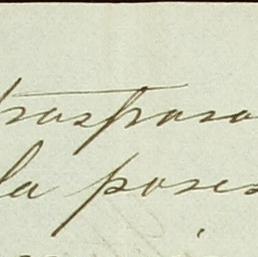 traspaso
la poses